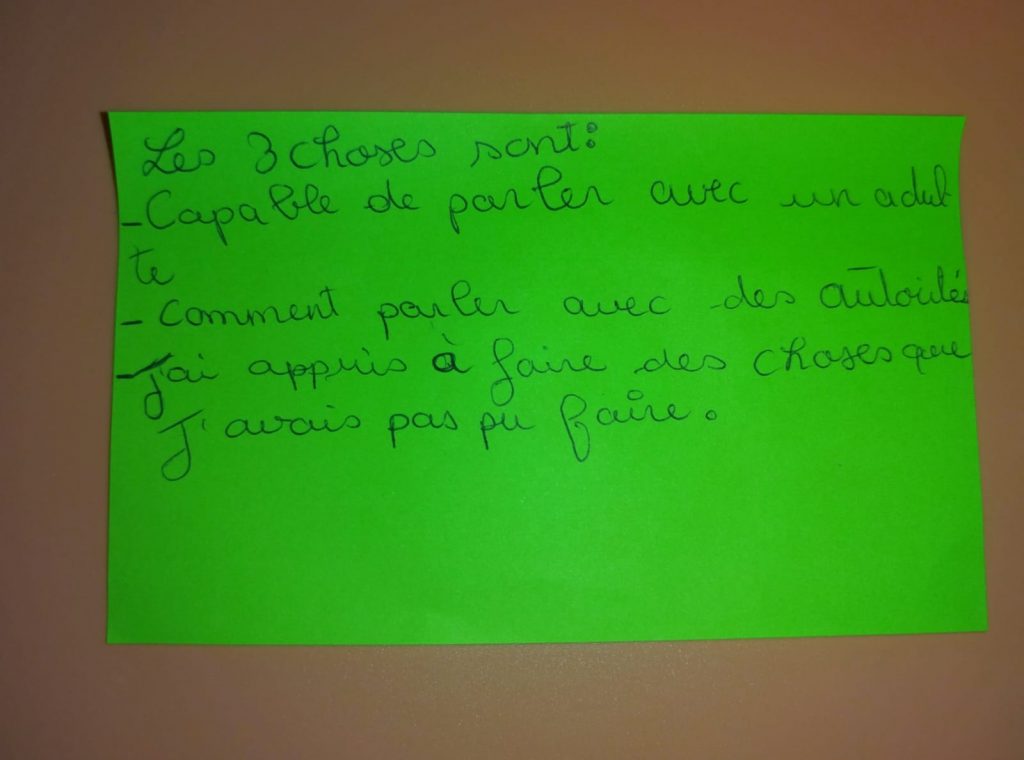 Les 3 choses sont:
- Capable de parler avec un adul
te
- Comment parler avec des autorités
- J'ai appris à faire des choses que
J'avais pas pu faire.